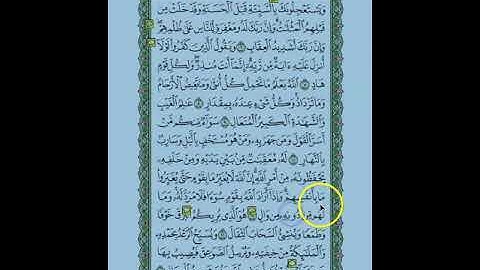 وَيَسْتَعْجِلُونَكَ بِٱلسَّيِّئَةِ قَبْلَ ٱلْحَسَنَةِ وَقَدْ خَلَتْ مِن
قَبْلِهِمُ ٱلْمَثُلَٰتُ وَإِنَّ رَبَّكَ لَذُو مَغْفِرَةٍ لِّلنَّاسِ عَلَىٰ ظُلْمِهِمْ
وَإِنَّ رَبَّكَ لَشَدِيدُ ٱلْعِقَابِ ٦ وَيَقُولُ ٱلَّذِينَ كَفَرُوا۟ لَوْلَآ
أُنزِلَ عَلَيْهِ ءَايَةٌ مِّن رَّبِّهِۦٓ إِنَّمَآ أَنتَ مُنذِرٌ وَلِكُلِّ قَوْمٍ
هَادٍ ٧ ٱللَّهُ يَعْلَمُ مَا تَحْمِلُ كُلُّ أُنثَىٰ وَمَا تَغِيضُ ٱلْأَرْحَامُ
وَمَا تَزْدَادُ وَكُلُّ شَىْءٍ عِندَهُۥ بِمِقْدَارٍ ٨ عَٰلِمُ ٱلْغَيْبِ
وَٱلشَّهَٰدَةِ ٱلْكَبِيرُ ٱلْمُتَعَالِ ٩ سَوَآءٌ مِّنكُم مَّنْ
أَسَرَّ ٱلْقَوْلَ وَمَن جَهَرَ بِهِۦ وَمَنْ هُوَ مُسْتَخْفٍۭ بِٱلَّيْلِ وَسَارِبٌۢ
بِٱلنَّهَارِ ١٠ لَهُۥ مُعَقِّبَٰتٌ مِّنۢ بَيْنِ يَدَيْهِ وَمِنْ خَلْفِهِۦ
يَحْفَظُونَهُۥ مِنْ أَمْرِ ٱللَّهِ إِنَّ ٱللَّهَ لَا يُغَيِّرُ مَا بِقَوْمٍ حَتَّىٰ يُغَيِّرُوا۟
مَا بِأَنفُسِهِمْ وَإِذَآ أَرَادَ ٱللَّهُ بِقَوْمٍ سُوٓءًا فَلَا مَرَدَّ لَهُۥ وَمَا
لَهُم مِّن دُونِهِۦ مِن وَالٍ ١١ هُوَ ٱلَّذِى يُرِيكُمُ ٱلْبَرْقَ خَوْفًا
وَطَمَعًا وَيُنشِئُ ٱلسَّحَابَ ٱلثِّقَالَ ١٢ وَيُسَبِّحُ ٱلرَّعْدُ بِحَمْدِهِۦ
وَٱلْمَلَٰٓئِكَةُ مِنْ خِيفَتِهِۦ وَيُرْسِلُ ٱلصَّوَٰعِقَ فَيُصِيبُ بِهَا